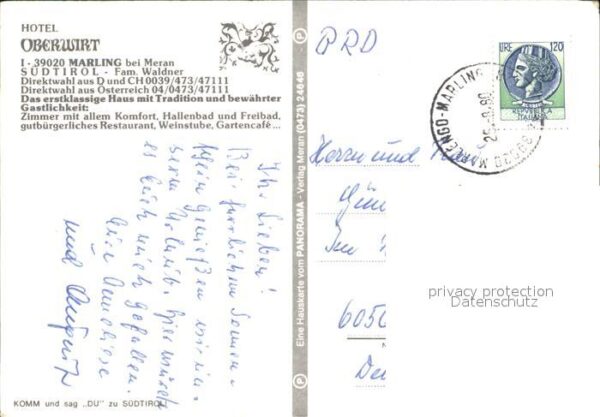 HOTEL
OBERWIRT
I - 39020 MARLING bei Meran
SÜDTIROL - Fam. Waldner
Direktwahl aus D und CH 0039/473/47111
Direktwahl aus Österreich 04/0473/47111
Das erstklassige Haus mit Tradition und bewährter
Gastlichkeit:
Zimmer mit allem Komfort, Hallenbad und Freibad,
gutbürgerliches Restaurant, Weinstube, Gartencafé ...
Ihr Lieben!
Bei herrlichem Sonnen-
schein genießen wir un-
seren Urlaub. Hier würde
es Euch auch gefallen.
Eure Anneliese
und August
KOMM und sag „DU" zu SÜDTIROL
P
Eine Hauskarte vom PANORAMA - Verlag Meran (0473) 24646
P
BRD
LIRE 120
REPUBBLICA
ITALIANA
39020 MARLENGO-MARLING
25-8.80
Herrn und
Im
6050
privacy protection
Datenschutz